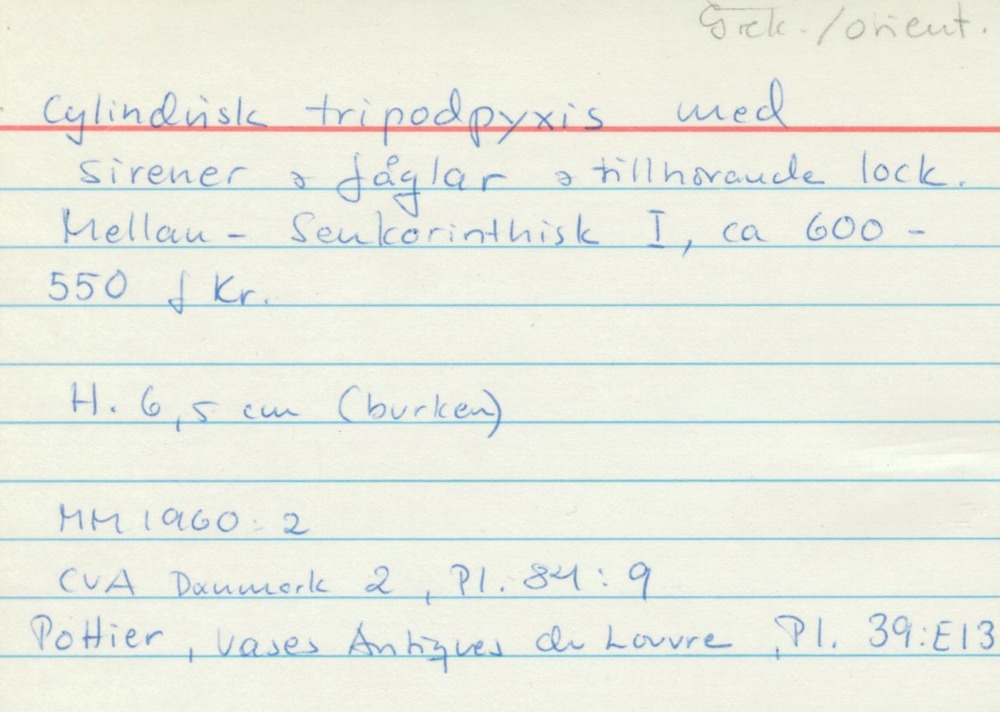 Grek. /orient.
Cylindrisk tripodpyxis med
sirener & fåglar & tillhörande lock.
Mellan - Senkorinthisk I, ca 600 -
550 f Kr.
H. 6,5 cm (burken)
MM 1960:2
CVA Danmark 2, Pl. 84:9
Pottier, Vases Antiques du Louvre, Pl. 39:E13